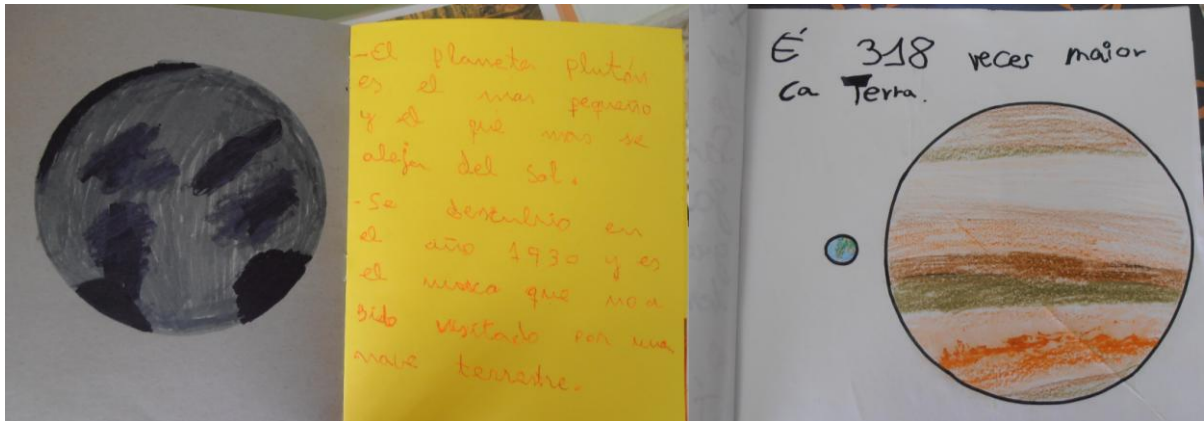 -El planeta plutón
es el mas pequeño
y el que mas se
aleja del sol.
-Se descubrio en
el año 1930 y es
el que no a
sido visitado por una
nave terrestre.
É 318 veces maior
ca Terra.